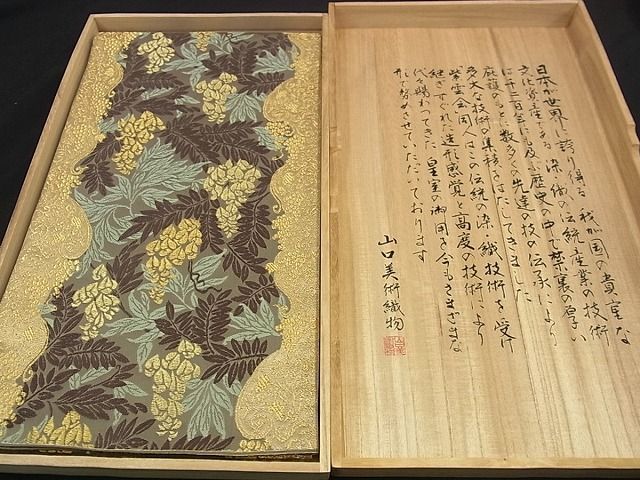 日本が世界に誇り得る我が国の貴重な
文化資産である染織の伝統産業の技術
は千二百年にも及ぶ歴史の中で禁裏の厚い
庇護のもとに数多くの先達の技の伝承により
多大な技術の集積をはたしてきました
紫雲会同人はこの伝統の染織技術を受け
継ぎすぐれた造形感覚と高度の技術により
代々賜わってきた皇室の御用を今もさまざまな
形で努めさせていただいております
山口美術織物